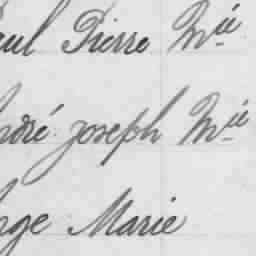 Paul Pierre Mie
André Joseph Mie
Ange Marie